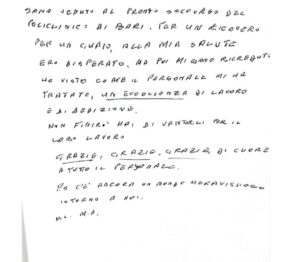 SONO VENUTO AL PRONTO SOCCORSO DEL
POLICLINICO DI BARI, PER UN RICOVERO
PER UN GUAIO, ALLA MIA SALUTE
ERO DISPERATO, MA POI MI SONO RICREDUTO
HO VISTO COME IL PERSONALE MI HA
TRATATO, UN ECCELLENZA DI LAVORO
E DI DEDIZIONE.
NON FINIRÒ MAI DI VANTARLI PER IL
LORO LAVORO
GRAZIE, GRAZIE, GRAZIE, DI CUORE
A TUTTO IL PERSONALE.
C'È ANCORA UN MONDO MERAVIGLIOSO
INTORNO A NOI.
M.A.